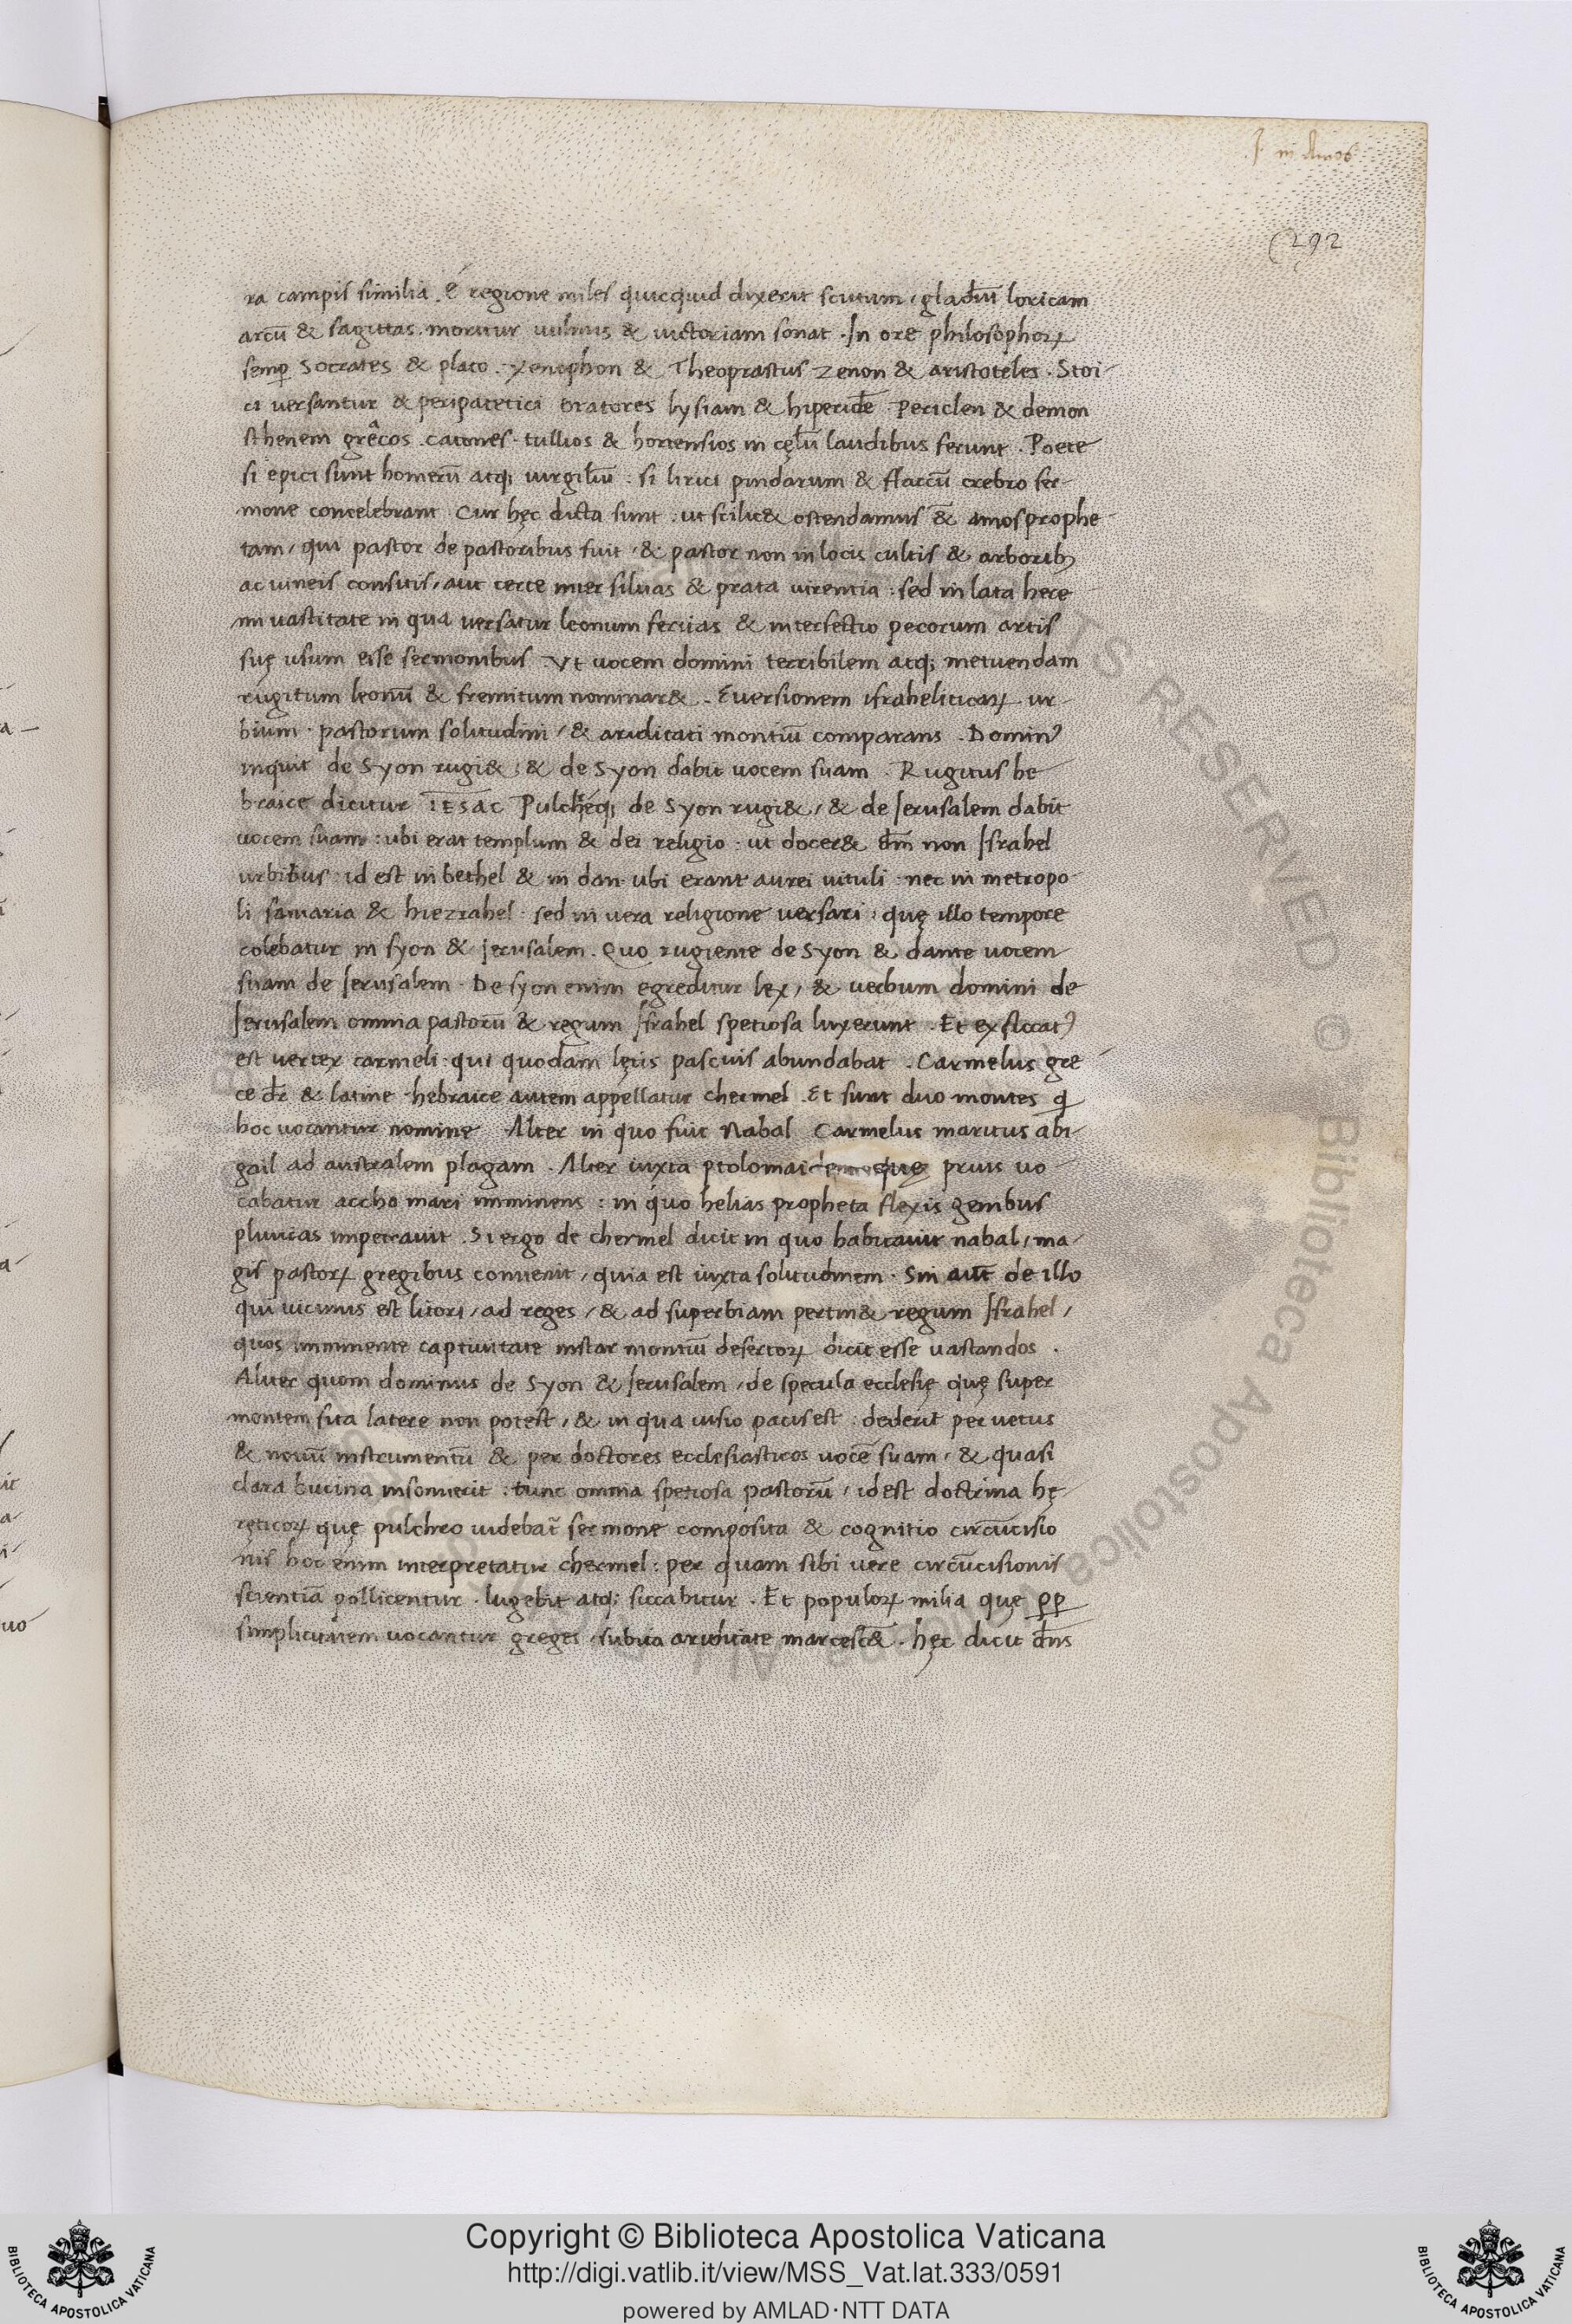 I in Amos
292
ra campis similia. é regione miles quicquid dixerit scutum, gladiū loricam
arcū & sagittas. moritur uulnus & uictoriam sonat. In ore philosophoꝝ
semꝑ Socrates & plato. xenophon & Theoprastus zenon & aristoteles. Stoi-
ci versantur & peripatetici oratores lysiam & hiperidē Periclen & demon
sthenem grêcos. catones. tullios & hortensios in cęlū laudibus ferunt. Poete
si epici sunt homerū atq; uirgiliū: si lirici pindarum & flaccū crebro ser-
mone concelebrant. Cur hęc dicta sunt. ut scilic& ostendamus & amos prophe-
tam, qui pastor de pastoribus fuit, & pastor non in locis cultis & arborib;
ac uineis consitis, aut certe inter siluas & prata uirentia: sed in lata here
mi uastitate in qua versatur leonum feritas & interfectio pecorum artis
suę usum esse sermonibus. Vt uocem domini terribilem atq; metuendam
rugitum leonū & fremitum nominar&. Euersionem israheliticaꝝ ur-
bium. pastorum solitudini, & ariditati montiū comparans. Dominꝰ
inquit de Syon rugi&, & de Syon dabit uocem suam. Rugitus he
braice dicitur IESAC Pulchreq; de Syon rugi&, & de Jerusalem dabit
uocem suam: ubi erat templum & dei religio. ut docer& dm̄ non Israhel
urbibus. id est in bethel & in dan ubi erant aurei uituli. nec in metropo-
li samaria & hiezrahel. sed in vera religione uersari, quę illo tempore
colebatur in syon & Jerusalem. Quo rugiente de Syon & dante uocem
suam de Jerusalem. De syon enim egreditur lex, & uerbum domini de
Jerusalem omnia pastorū & regum Israhel spetiosa luxerunt. Et exsiccatꝰ
est vertex carmeli. qui quodam lętis pascuis abundabat. Carmelus gre
ce dr̄ & latine. hebraice autem appellatur chermel. Et sunt duo montes q̇
hoc uocantur nomine. Alter in quo fuit Nabal Carmelus maritus abi-
gail ad australem plagam. Alter iuxta ptolomaidem quę prius uo-
cabatur accho mari imminens: in quo helias propheta flexis genibus
pluuias impetrauit. Si ergo de chermel dicit in quo habitauit nabal, ma-
gis pastoꝝ gregibus conuenit, quia est iuxta solitudinem. Sin aūt de illo
qui uicinus est litori, ad reges, & ad superbiam pertin& regum Israhel,
quos imminente captiuitate instar montiū desertoꝝ dicit esse vastandos.
Aliter quom dominus de Syon & Jerusalem, de specula ecclesię quę super
montem sita latere non potest, & in qua uisio pacis est: dederit per uetus
& nouū instrumentū & per doctores ecclesiasticos uocē suam, & quasi
clara bucina insonuerit: tunc omnia spetiosa pastorū, id est doctrina hę-
reticoꝝ quę pulchro uidebat̄ sermone composita & cognitio circūcisio
nis hoc enim interpretatur chermel: per quam sibi vere circūcisionis
scientiā pollicentur. lugebit atq; siccabitur. Et populoꝝ milia quę ꝓꝑ
simplicitatem uocantur greges, subita ariditate marcesc&. hęc dicit dn̄s
Copyright © Biblioteca Apostolica Vaticana
http://digi.vatlib.it/view/MSS_Vat.lat.333/0591
powered by AMLAD·NTT DATA
BIBLIOTECA APOSTOLICA VATICANA
BIBLIOTECA APOSTOLICA VATICANA